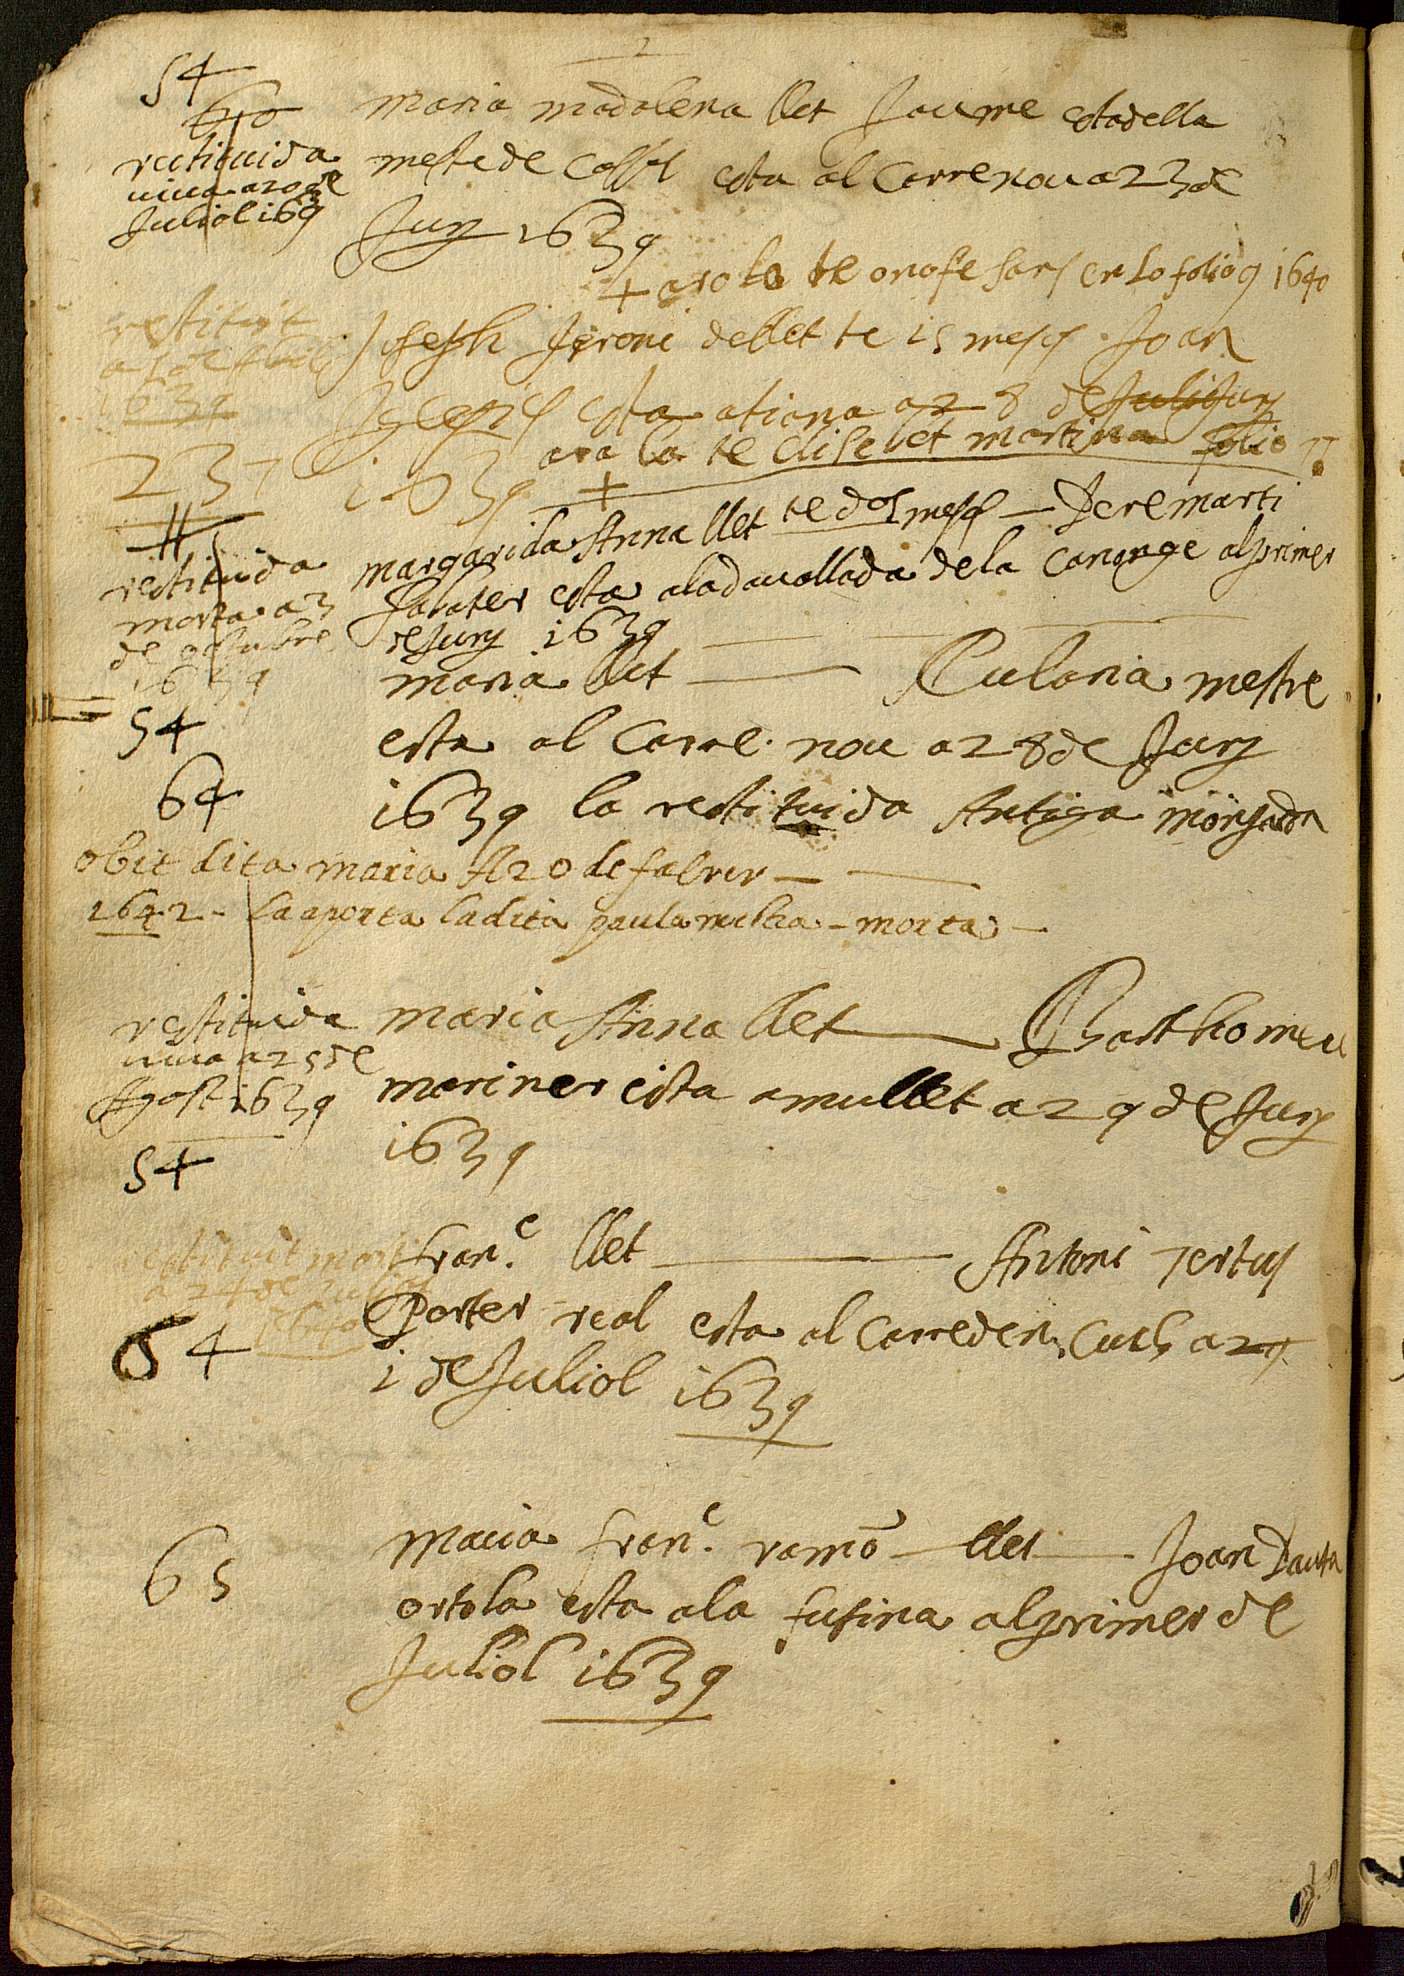 54
60
restituida
viva a 20 de
Juliol 1639
maria madalena llet Jaume estadella
mestre de Cases esta al Carrenou a 23 de
Juny 1639
+ aro la te onofe fars en lo folio 9 1640
restituit
a 5 de
1639
237
Joseph Jeroni de llet te 15 mesos Joan
esta a tiana a 28 de Juliol Juny
1639 + ara la te elisebet martina folio 77
restituida
morta a 3
de octubre
1639
54
margarida Anna llet te dos mesos — Pere marti
sabater esta ala davallada dela Canonge al primer
de Juny 1639
64
maria llet — Eularia mestre
esta al Carre nou a 28 de Juny
1639 la restituida Antiga monjada
obit dita maria A 20 de fabrer —
1642 - la aporta la dita paula - morta -
restituida
viva a 25 de
Agost 1639
54
maria Anna llet — Barthomeu
mariner esta a mullet a 29 de Juny
1639
restituit mort
a 24 de Juliol
1640
54
fran.c llet — Antoni
Porter real esta al Carreden Cuch a 29
1 de Juliol 1639
65
maria fran.c ramo — llet — Joan Pauta
ortola esta ala fusina al primer de
Juliol 1639